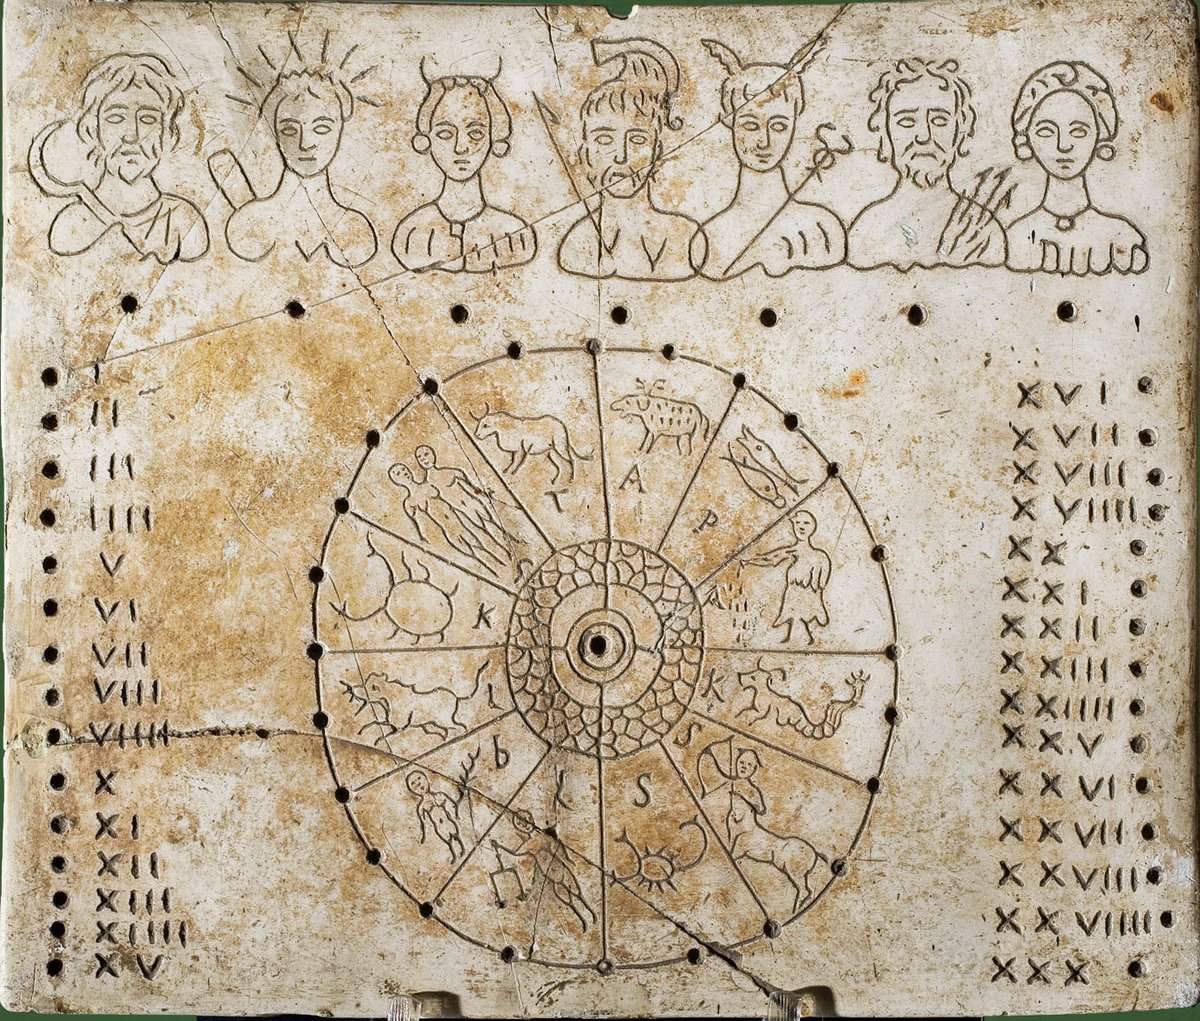 I
II
III
IIII
V
VI
VII
VIII
VIIII
X
XI
XII
XIII
XIIII
XV
A
T
K
L
b
S
S
K
A
P
XVI
XVII
XVIII
XVIIII
XX
XXI
XXII
XXIII
XXIIII
XXV
XXVI
XXVII
XXVIII
XXVIIII
XXX